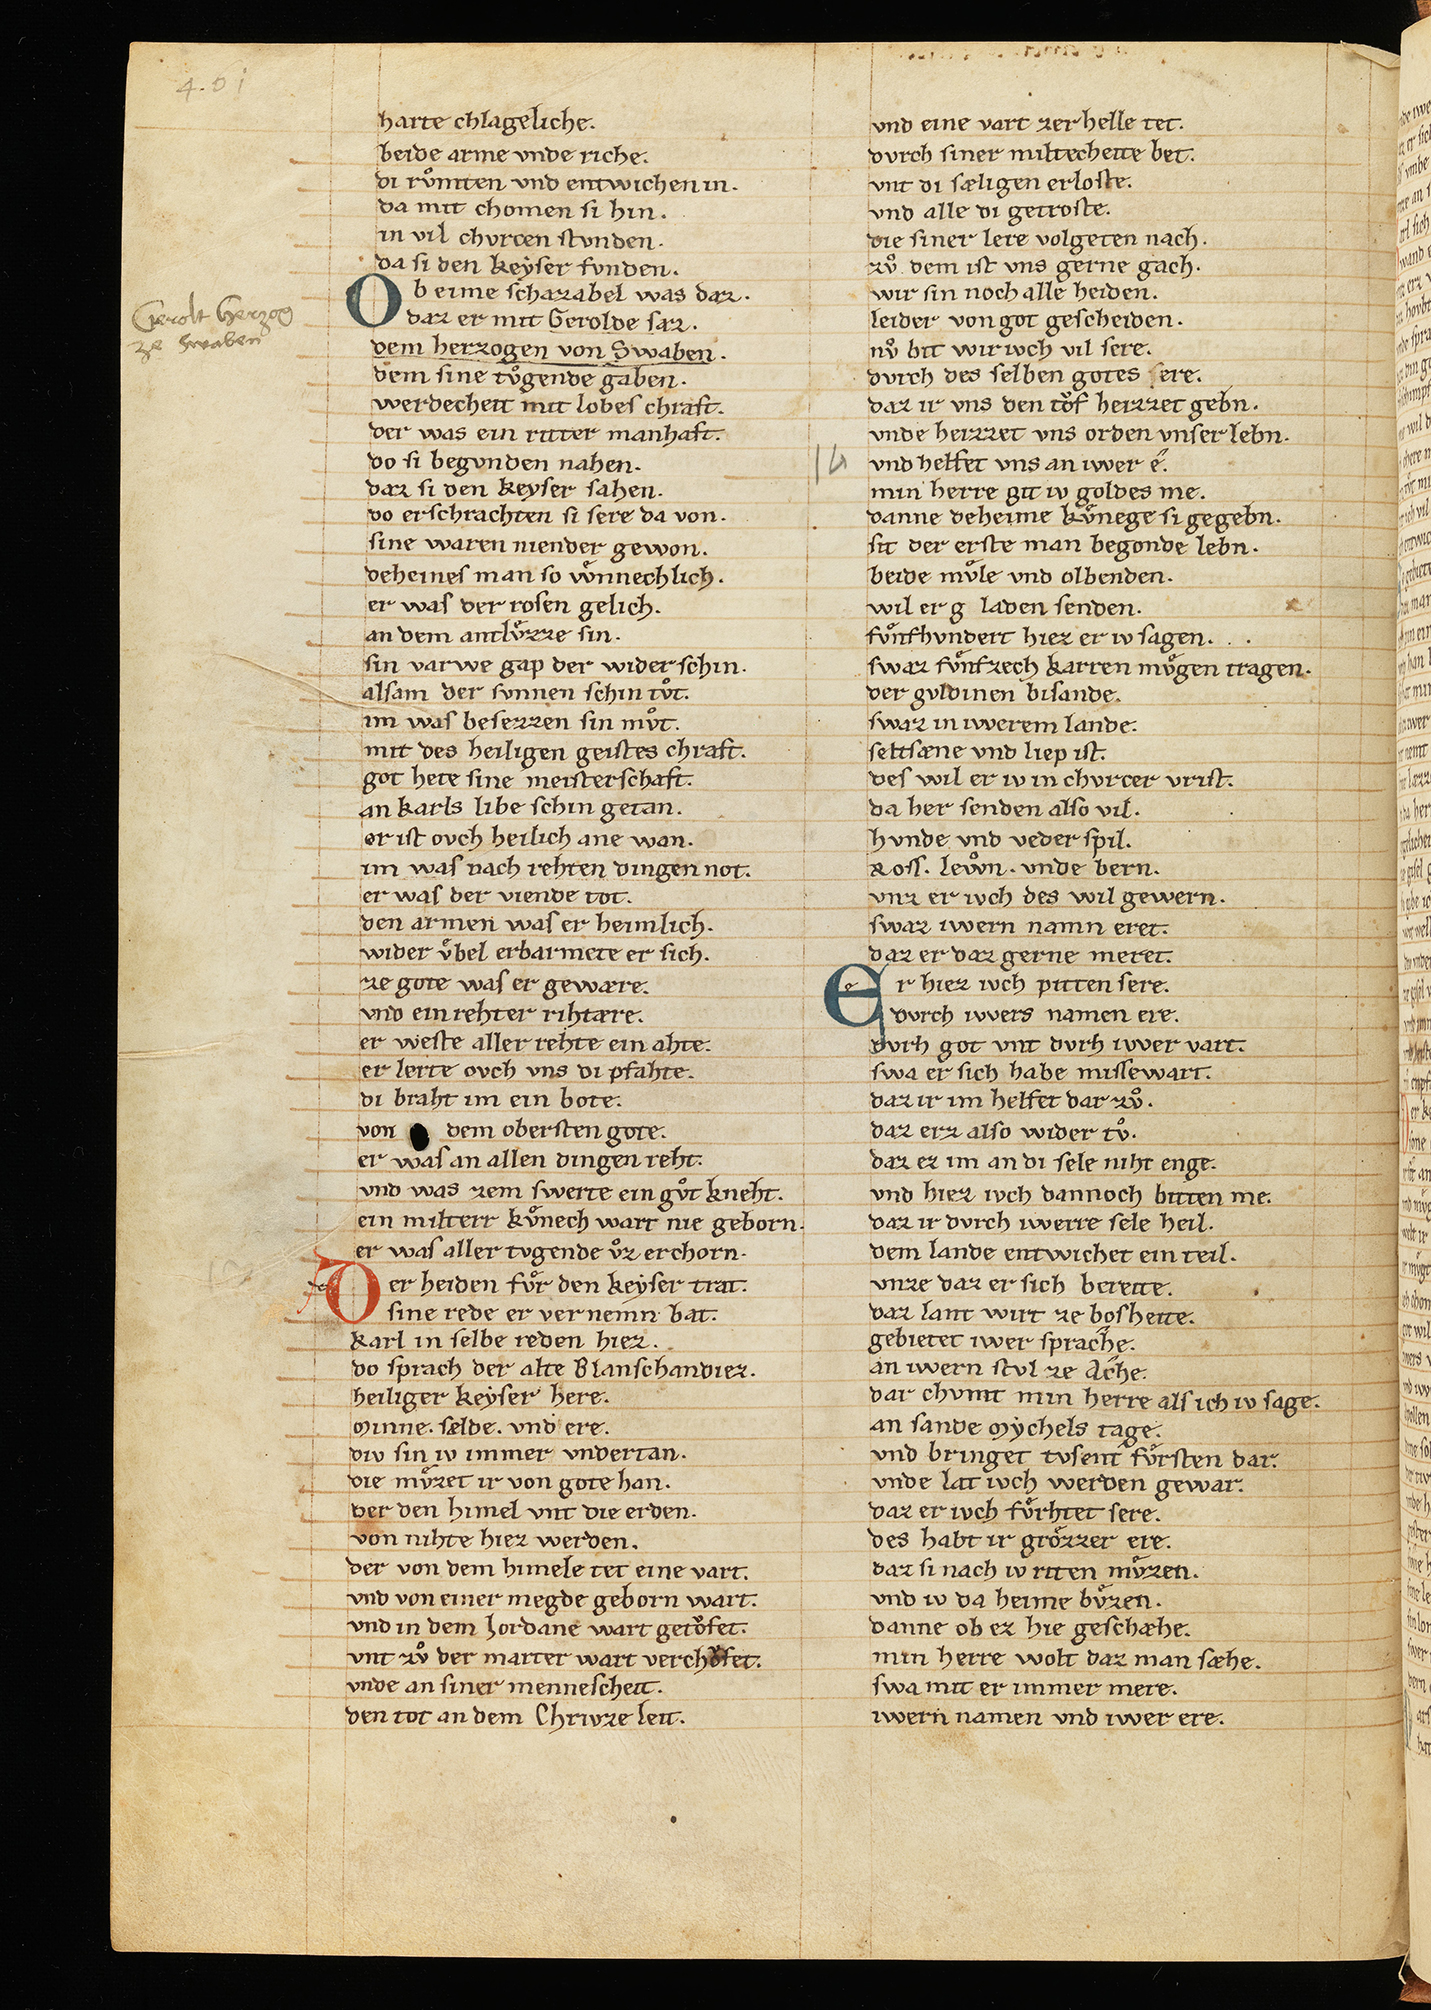 4.01
harte chlageliche.
beide arme vnde riche.
di růmten vnd entwichen in.
da mit chomen si hin.
in vil chvrcen stvnden.
da si den keyser fvnden.
Ob eime schazabel was daz.
daz er mit Gerolde saz.
Gerolt herzog
ze swaben
dem herzogen von Swaben.
dem sine tůgende gaben.
werdecheit mit lobes chraft.
der was ein ritter manhaft.
do si begvnden nahen.
daz si den keyser sahen.
do erschrachten si sere da von.
sine waren niender gewon.
deheines man so wͤnnechlich.
er was der rosen gelich.
an dem antlvͤzze sin.
sin varwe gap der wider schin.
alsam der svnnen schin tvͦt.
im was besezzen sin mvͦt.
mit des heiligen geistes chraft.
got hete sine meisterschaft.
an karls libe schin getan.
er ist ovch heilich ane wan.
im was nach rehten dingen not.
er was der viende tot.
den armen was er heimlich.
wider vͤbel erbarmete er sich.
ze gote was er gewære.
vnd ein rehter rihtære.
er weste aller rehte ein ahte.
er lerte ovch vns di pfahte.
di braht im ein bote.
von dem obersten gote.
er was an allen dingen reht.
vnd was zem swerte ein gvͦt kneht.
ein milterr kvͤnech wart nie geborn.
er was aller tvgende vͦz erchorn.
Der heiden fvͤr den keyser trat.
sine rede er vernemn bat.
karl in selbe reden hiez.
do sprach der alte Blanschandiez.
heiliger keyser here.
minne. sælde. vnd ere.
div sin iv immer vndertan.
die mvͤzet ir von gote han.
der den himel vnt die erden.
von nihte hiez werden.
der von dem himele tet eine vart.
vnd von einer megde geborn wart.
vnd in dem Jordane wart getoͮfet.
vnt zvͦ der marter wart verchoͮfet.
vnde an siner mennescheit.
den tot an dem Chrivze leit.
vnd eine vart zer helle tet.
dvrch siner miltecheite bet.
vnt di sæligen erloste.
vnd alle di getroste.
die siner lere volgeten nach.
zvͦ dem ist vns gerne gach.
wir sin noch alle heiden.
leider von got gescheiden.
nvͦ bit wir ivch vil sere.
dvrch des selben gotes ere.
daz ir vns den toͮf heizzet gebn.
vnde heizzet vns orden vnser lebn.
14
vnd helfet vns an iwer é.
min herre git iv goldes me.
danne deheime kvͤnege si gegebn.
sit der erste man begonde lebn.
beide mvͤle vnd olbenden.
wil er g laden senden.
fvͤnfhvndert hiez er iv sagen.
swaz fvͤnfzech karren mvͤgen tragen.
der gvldinen bisande.
swaz in iwerem lande.
seltsæne vnd liep ist.
des wil er iv in chvrcer vrist.
da her senden also vil.
hvnde vnd veder spil.
ross. lewͦn. vnde bern.
vnz er ivch des wil gewern.
swaz iwern namn eret.
daz er daz gerne meret.
Er hiez ivch pitten sere.
dvrch iwers namen ere.
dvrh got vnt dvrh iwer vart.
swa er sich habe missewart.
daz ir im helfet dar zvͦ.
daz erz also wider tvͦ.
daz ez im an di sele niht enge.
vnd hiez ivch dannoch bitten me.
daz ir dvrch iwerre sele heil.
dem lande entwichet ein teil.
vnze daz er sich bereite.
daz lant wirt ze bosheite.
gebietet iwer sprache.
an iwern stvl ze Ache.
dar chvmt min herre als ich iv sage.
an sande Mychels tage.
vnd bringet tvsent fvͤrsten dar.
vnde lat ivch werden gewar.
daz er ivch fvͤrhtet sere.
des habt ir groͤzzer ere.
daz si nach iv riten mvͤzen.
vnd iv da heime bvͤzen.
danne ob ez hie geschæhe.
min herre wolt daz man sæhe.
swa mit er immer mere.
iwern namen vnd iwer ere.